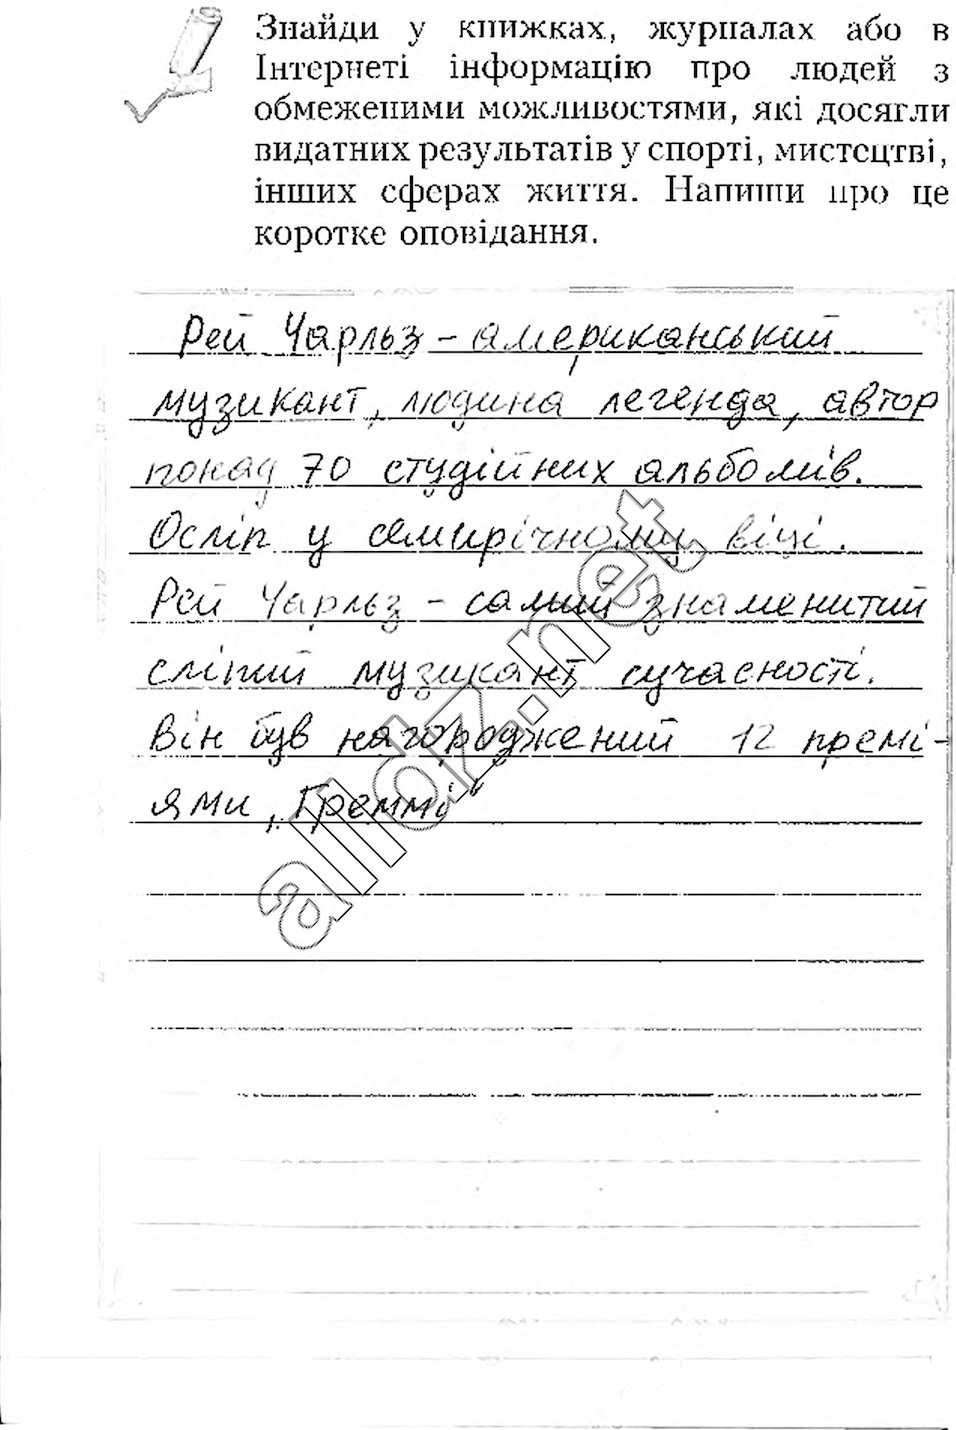 Знайди у книжках, журналах або в
Інтернеті інформацію про людей з
обмеженими можливостями, які досягли
видатних результатів у спорті, мистецтві,
інших сферах життя. Напиши про це
коротке оповідання.
Рей Чарльз - американський
музикант, людина легенда, автор
понад 70 студійних альбомів.
Осліп у семирічному віці.
Рей Чарльз - самий знаменитий
сліпий музикант сучасності.
Він був нагороджений 12 премі-
ями „Греммі“
alldz.net